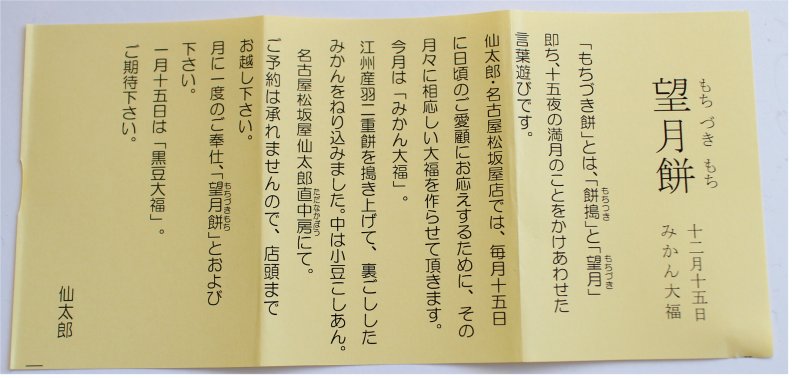 もちづきもち
望月餅
十二月十五日
みかん大福
「もちづき餅」とは、「餅搗」と「望月」
もちつき
もちづき
即ち、十五夜の満月のことをかけあわせた
言葉遊びです。
仙太郎・名古屋松坂屋店では、毎月十五日
に日頃のご愛顧にお応えするために、その
月々に相応しい大福を作らせて頂きます。
今月は「みかん大福」。
江州産羽二重餅を搗き上げて、裏ごしした
みかんをねり込みました。中は小豆こしあん。
名古屋松坂屋仙太郎直中房にて。
ただなかぼう
ご予約は承れませんので、店頭まで
お越し下さい。
月に一度のご奉仕、「望月餅」とおよび
もちづきもち
下さい。
一月十五日は「黒豆大福」。
ご期待下さい。
仙太郎